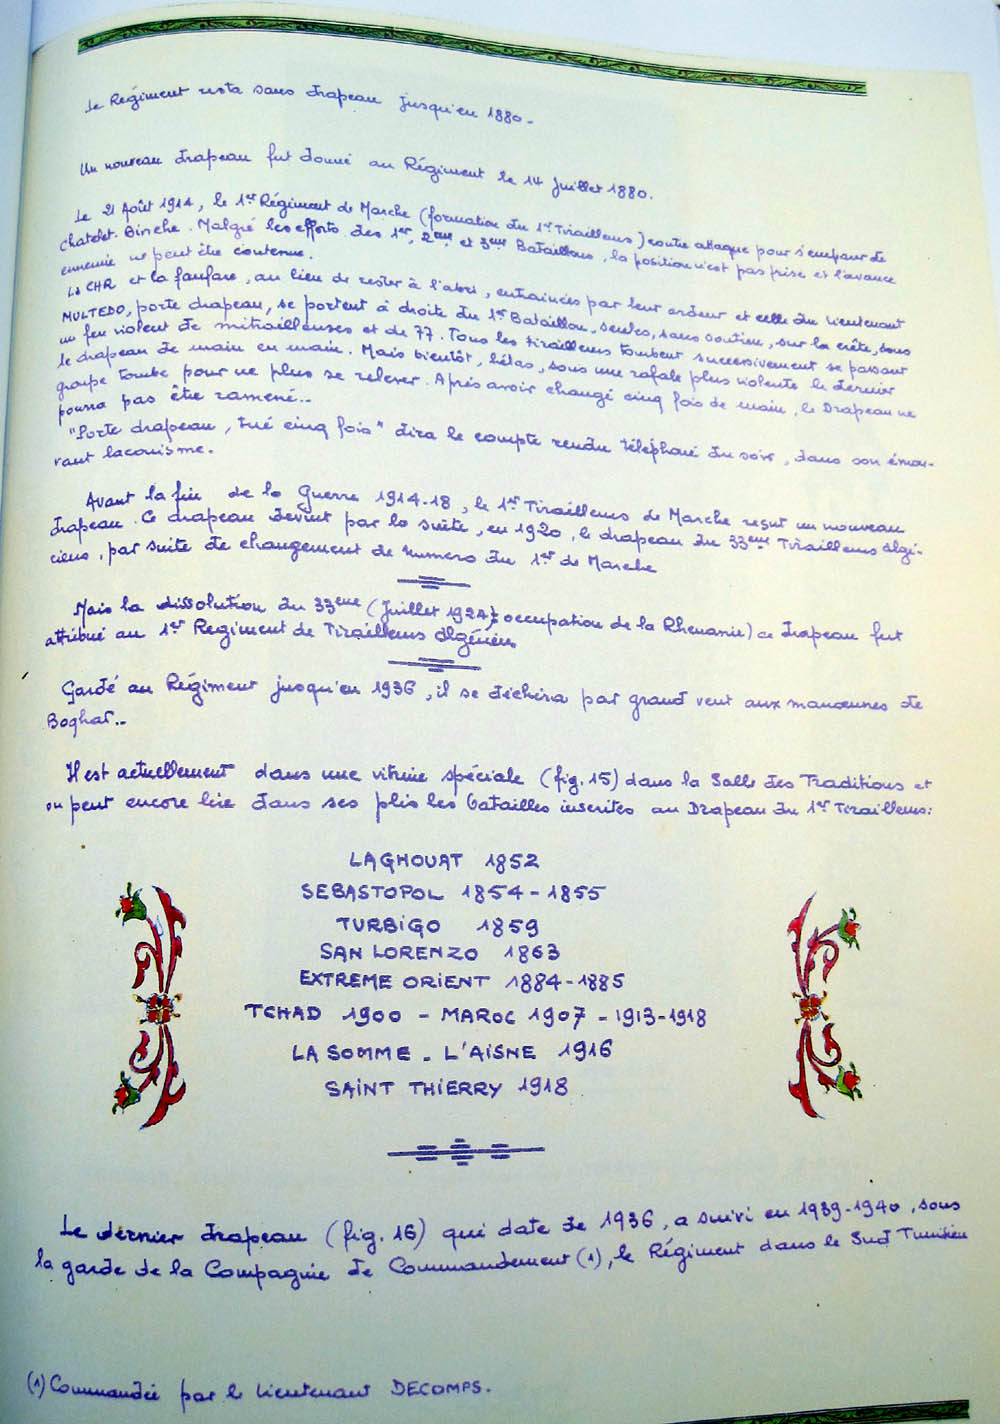 Le Régiment resta sans drapeau jusqu'en 1880.
Un nouveau drapeau fut donné au Régiment le 14 Juillet 1880.
Le 21 Août 1914, le 1er Régiment de Marche (formation du 1er Tirailleurs) contre attaque pour s'emparer de
Chatelet-Binche. Malgré les efforts des 1er, 2eme et 3eme Bataillons, la position n'est pas prise et l'avance
ennemie ne peut être contenue.
La CHR et la fanfare, au lieu de rester à l'abri, entrainées par leur ardeur et celle du Lieutenant
MULTEDO, porte drapeau, se portent à droite du 1er Bataillon, seules, sans soutien, sur la crête, sous
un feu violent de mitrailleuses et de 77. Tous les tirailleurs tombent successivement se passant
le drapeau de main en main. Mais bientôt, hélas, sous une rafale plus violente le dernier
groupe tombe pour ne plus se relever. Après avoir changé cinq fois de main, le Drapeau ne
pourra pas être ramené...
"Porte drapeau, tué cinq fois" dira le compte rendu téléphoné du soir, dans son émou-
vant laconisme.
Avant la fin de la Guerre 1914-18, le 1er Tirailleurs de Marche reçut un nouveau
drapeau. Ce drapeau devint par la suite, en 1920, le drapeau du 33eme Tirailleurs Algé-
riens, par suite de changement de numero du 1er de Marche
Mais la dissolution du 33eme (Juillet 1924; occupation de la Rhenanie) ce drapeau fut
attribué au 1er Regiment de Tirailleurs Algériens
Gardé au Régiment jusqu'en 1936, il se déchira par grand vent aux manœuvres de
Boghar...
Il est actuellement dans une vitrine spéciale (fig. 15) dans la Salle des Traditions et
on peut encore lire dans ses plis les batailles inscrites au Drapeau du 1er Tirailleurs:
LAGHOUAT 1852
SEBASTOPOL 1854-1855
TURBIGO 1859
SAN LORENZO 1863
EXTREME ORIENT 1884-1885
TCHAD 1900 - MAROC 1907 - 1913-1918
LA SOMME - L'AISNE 1916
SAINT THIERRY 1918
Le dernier drapeau (fig. 16) qui date de 1936, a suivi en 1939-1940, sous
la garde de la Compagnie de Commandement (1), le Régiment dans le Sud Tunisien
(1) Commandée par le Lieutenant DECOMPS.